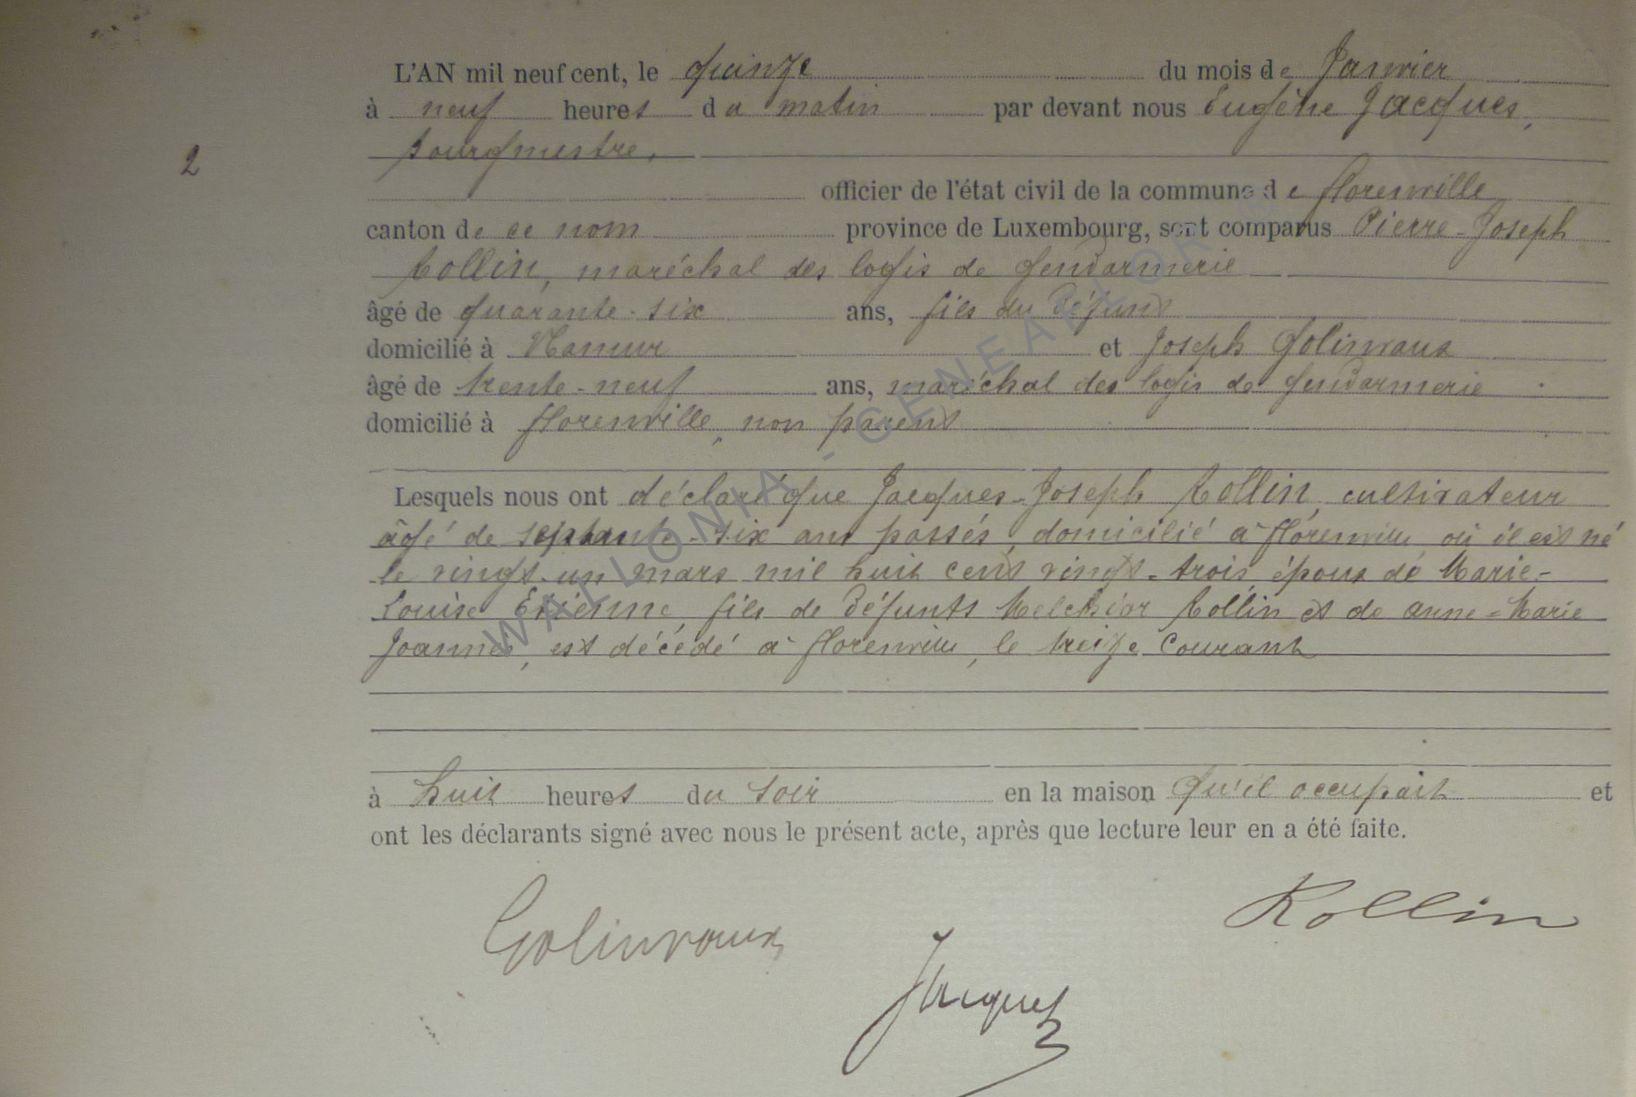 L'AN mil neuf cent, le quinze du mois de Janvier
à neuf heures du matin par devant nous Eugène Jacques,
bourgmestre,
2
officier de l'état civil de la commune de Florenville
canton de ce nom province de Luxembourg, sont comparus Pierre-Joseph
Collin, maréchal des logis de gendarmerie
âgé de quarante-six ans, fils du défunt
domicilié à Namur et Joseph Golinvaux
âgé de trente-neuf ans, maréchal des logis de gendarmerie
domicilié à Florenville, non parent
Lesquels nous ont déclaré que Jacques-Joseph Collin, cultivateur
âgé de septante-six ans passés, domicilié à Florenville où il est né
le vingt-un mars mil huit cent vingt-trois, époux de Marie-
Louise Etienne, fils de défunts Melchior Collin et de Anne-Marie
Joannes, est décédé à Florenville, le treize courant
à huit heures du soir en la maison qu'il occupait et
ont les déclarants signé avec nous le présent acte, après que lecture leur en a été faite.
Golinvaux Kollin
Jacques